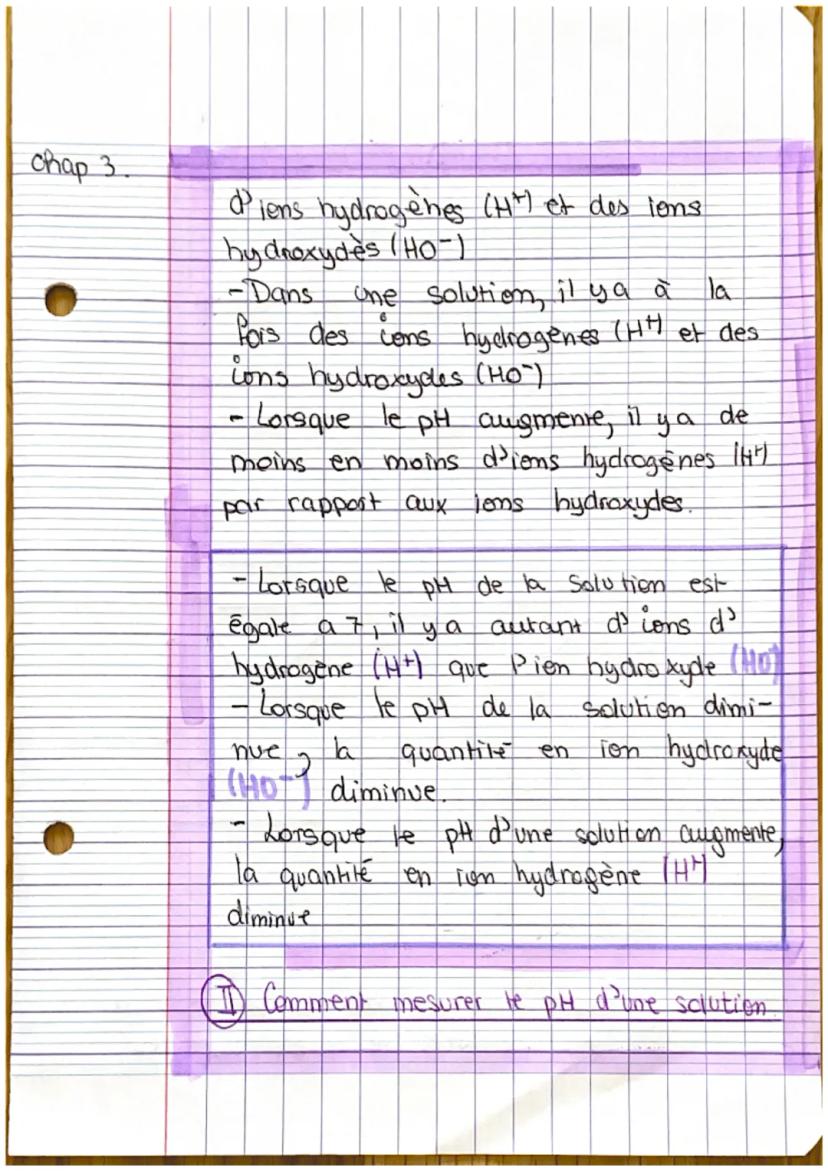 Chap 3.
d'ions hydrogènes (H+) et des ions
hydroxydès (HO-)
- Dans une solution, il y a à la
fois des ions hydrogènes (H+) et des
ions hydroxydes (HO-)
- Lorsque le pH augmente, il y a de
moins en moins d'ions hydrogènes (H+)
par rapport aux ions hydroxydes.
- Lorsque le pH de la solution est
égale a 7, il y a autant d'ions d'
hydrogène (H+) que l'ion hydroxyde (HO)
- Lorsque le pH de la solution dimi-
nue, la quantité en ion hydroxyde
(HO-) diminue.
- Lorsque le pH d'une solution augmente,
la quantité en ion hydrogène (H+)
diminue
II Comment mesurer le pH d'une solution